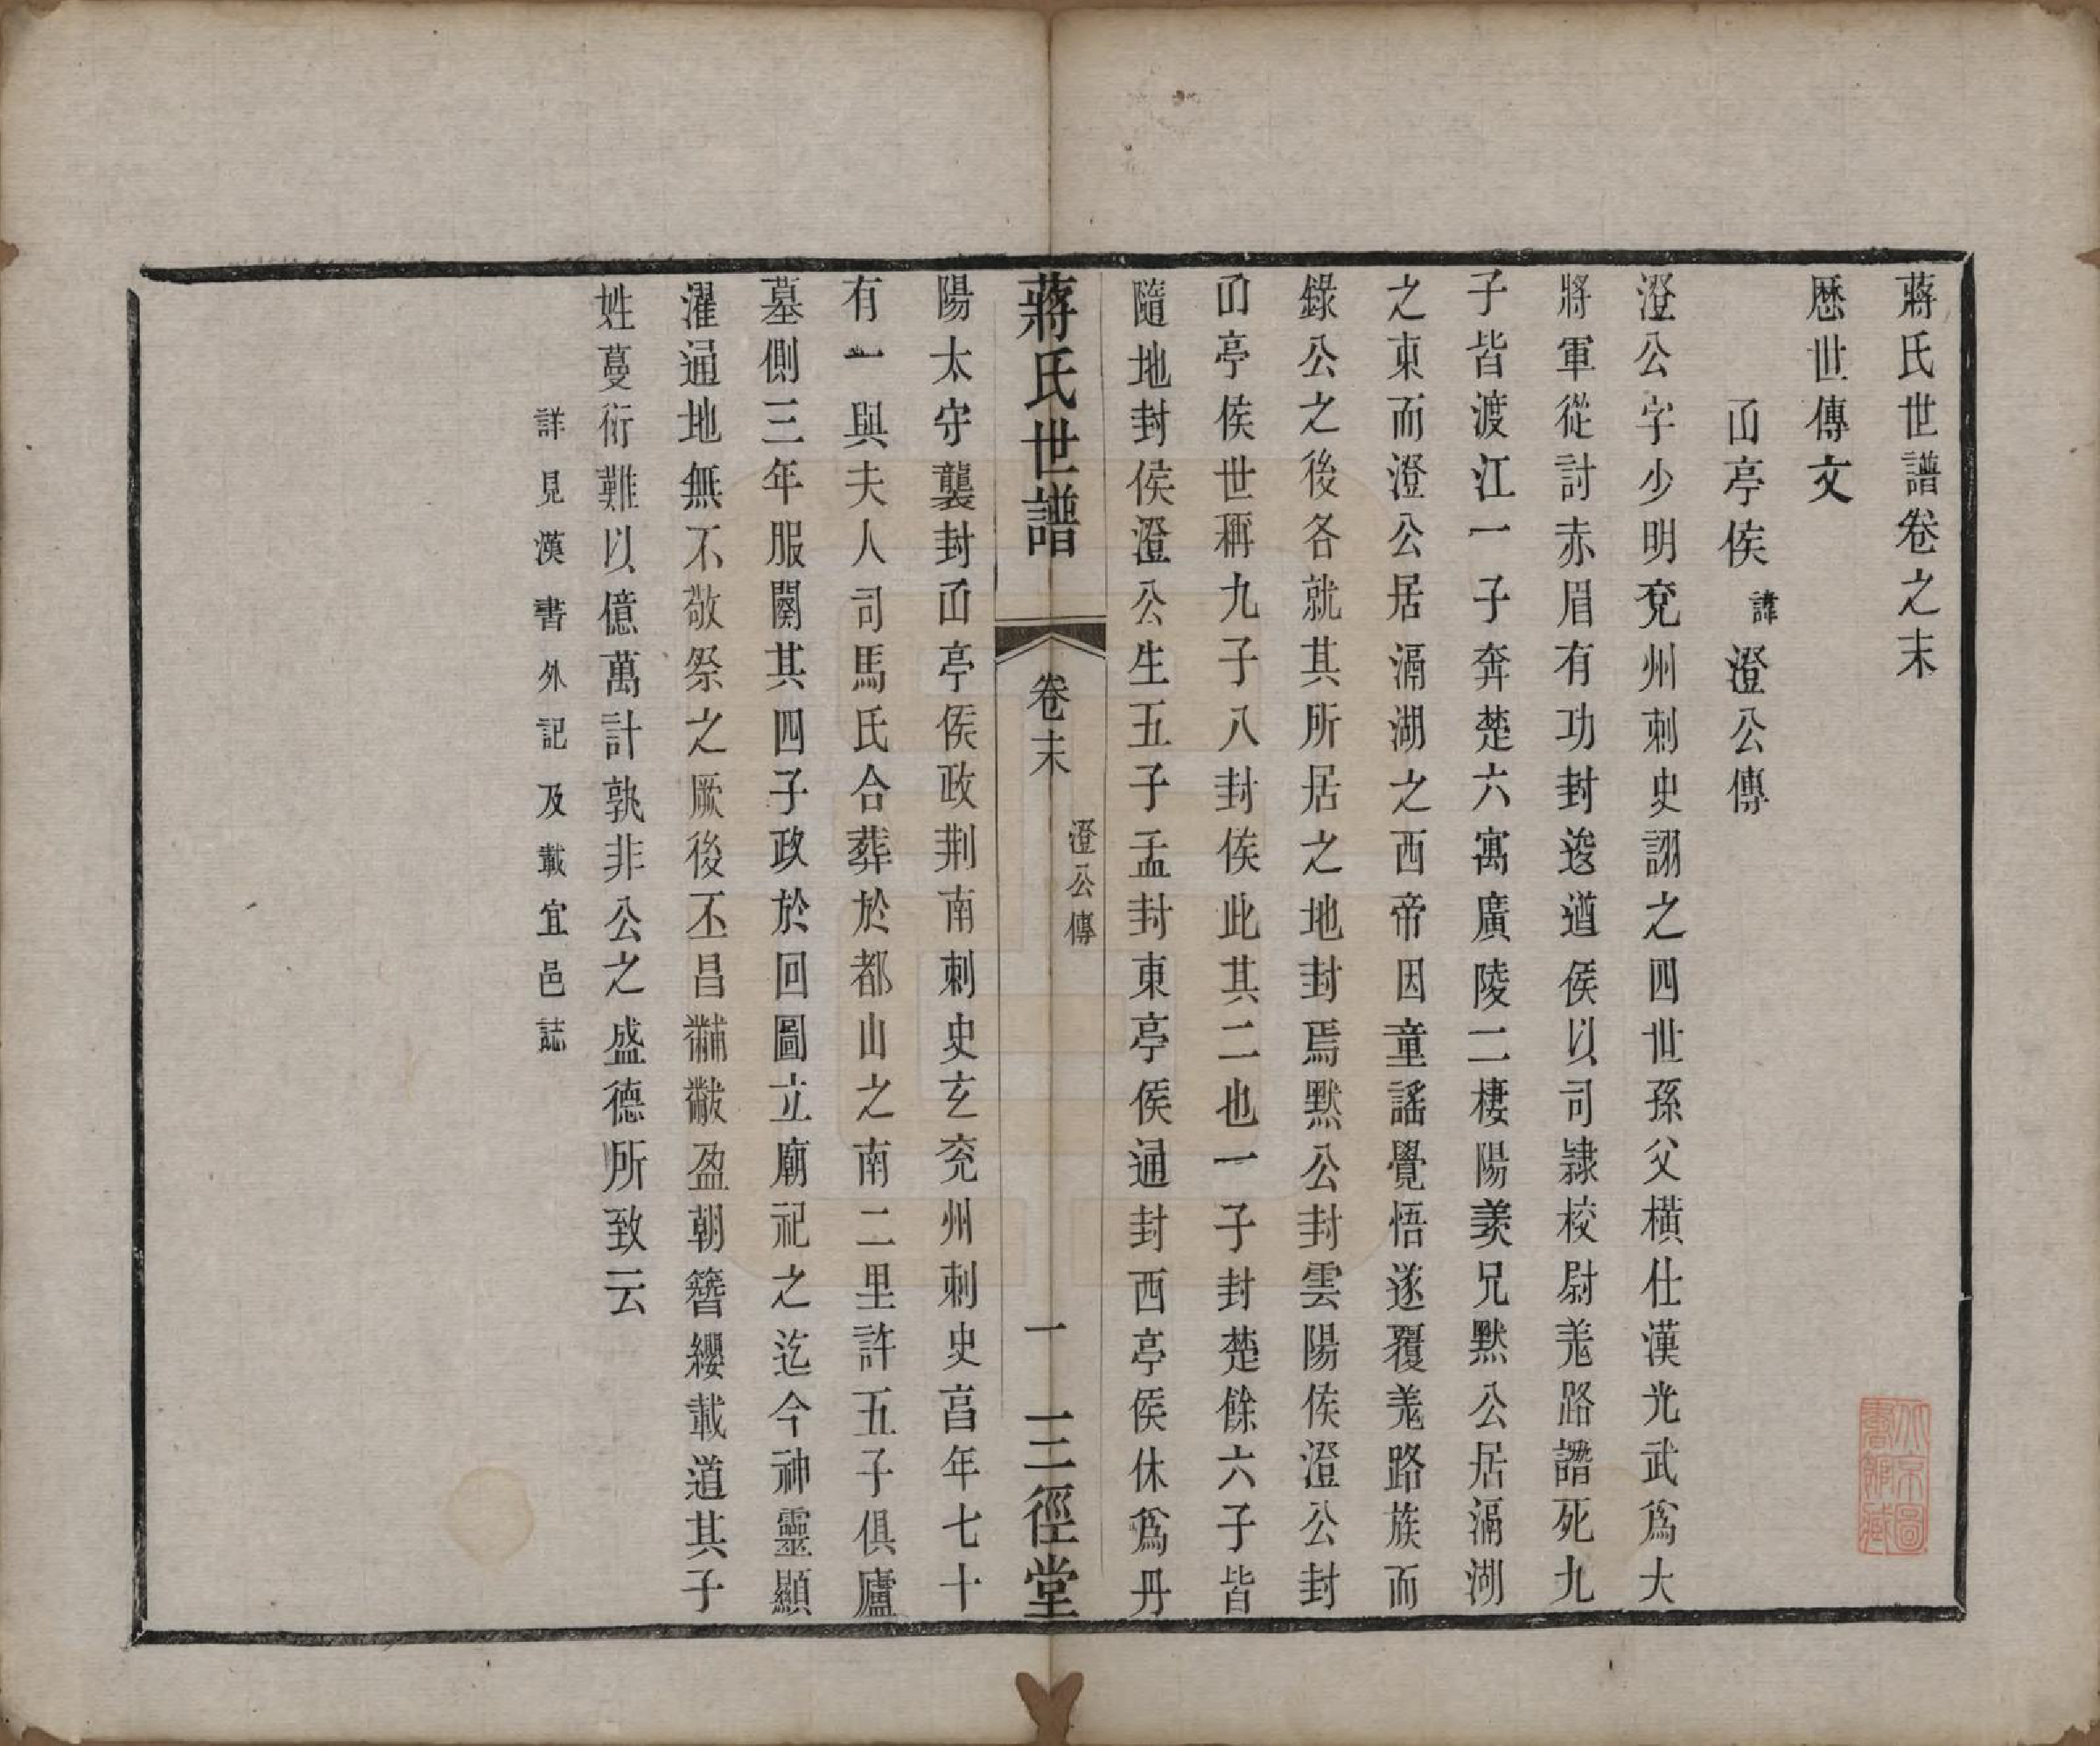 蔣氏世譜卷之末
歷世傳文
㔽亭侯諱澄公傳
澄公字少明兗州刺史詡之四世孫父橫仕漢光武爲大
將軍從討赤眉有功封逡遒侯以司隸校尉羗路譖死九
子皆渡江一子奔楚六寓廣陵二棲陽羨兄默公居滆湖
之東而澄公居滆湖之西帝因童謠覺悟遂覆羗路族而
錄公之後各就其所居之地封焉默公封雲陽侯澄公封
㔽亭侯世稱九子八封侯此其二也一子封楚餘六子皆
隨地封侯澄公生五子孟封東亭侯通封西亭侯休爲丹
蔣氏世譜
卷末
澄公傳
一
三徑堂
陽太守襲封㔽亭侯政荆南刺史玄兗州刺史亯年七十
有一與夫人司馬氏合葬於都山之南二里許五子俱廬
墓側三年服闋其四子政於回圖立廟祀之迄今神靈顯
濯通地無不敬祭之厥後丕昌黼黻盈朝簪纓載道其子
姓蔓衍難以億萬計孰非公之盛德所致云
詳見漢書外記及載宜邑誌
北京圖書館藏